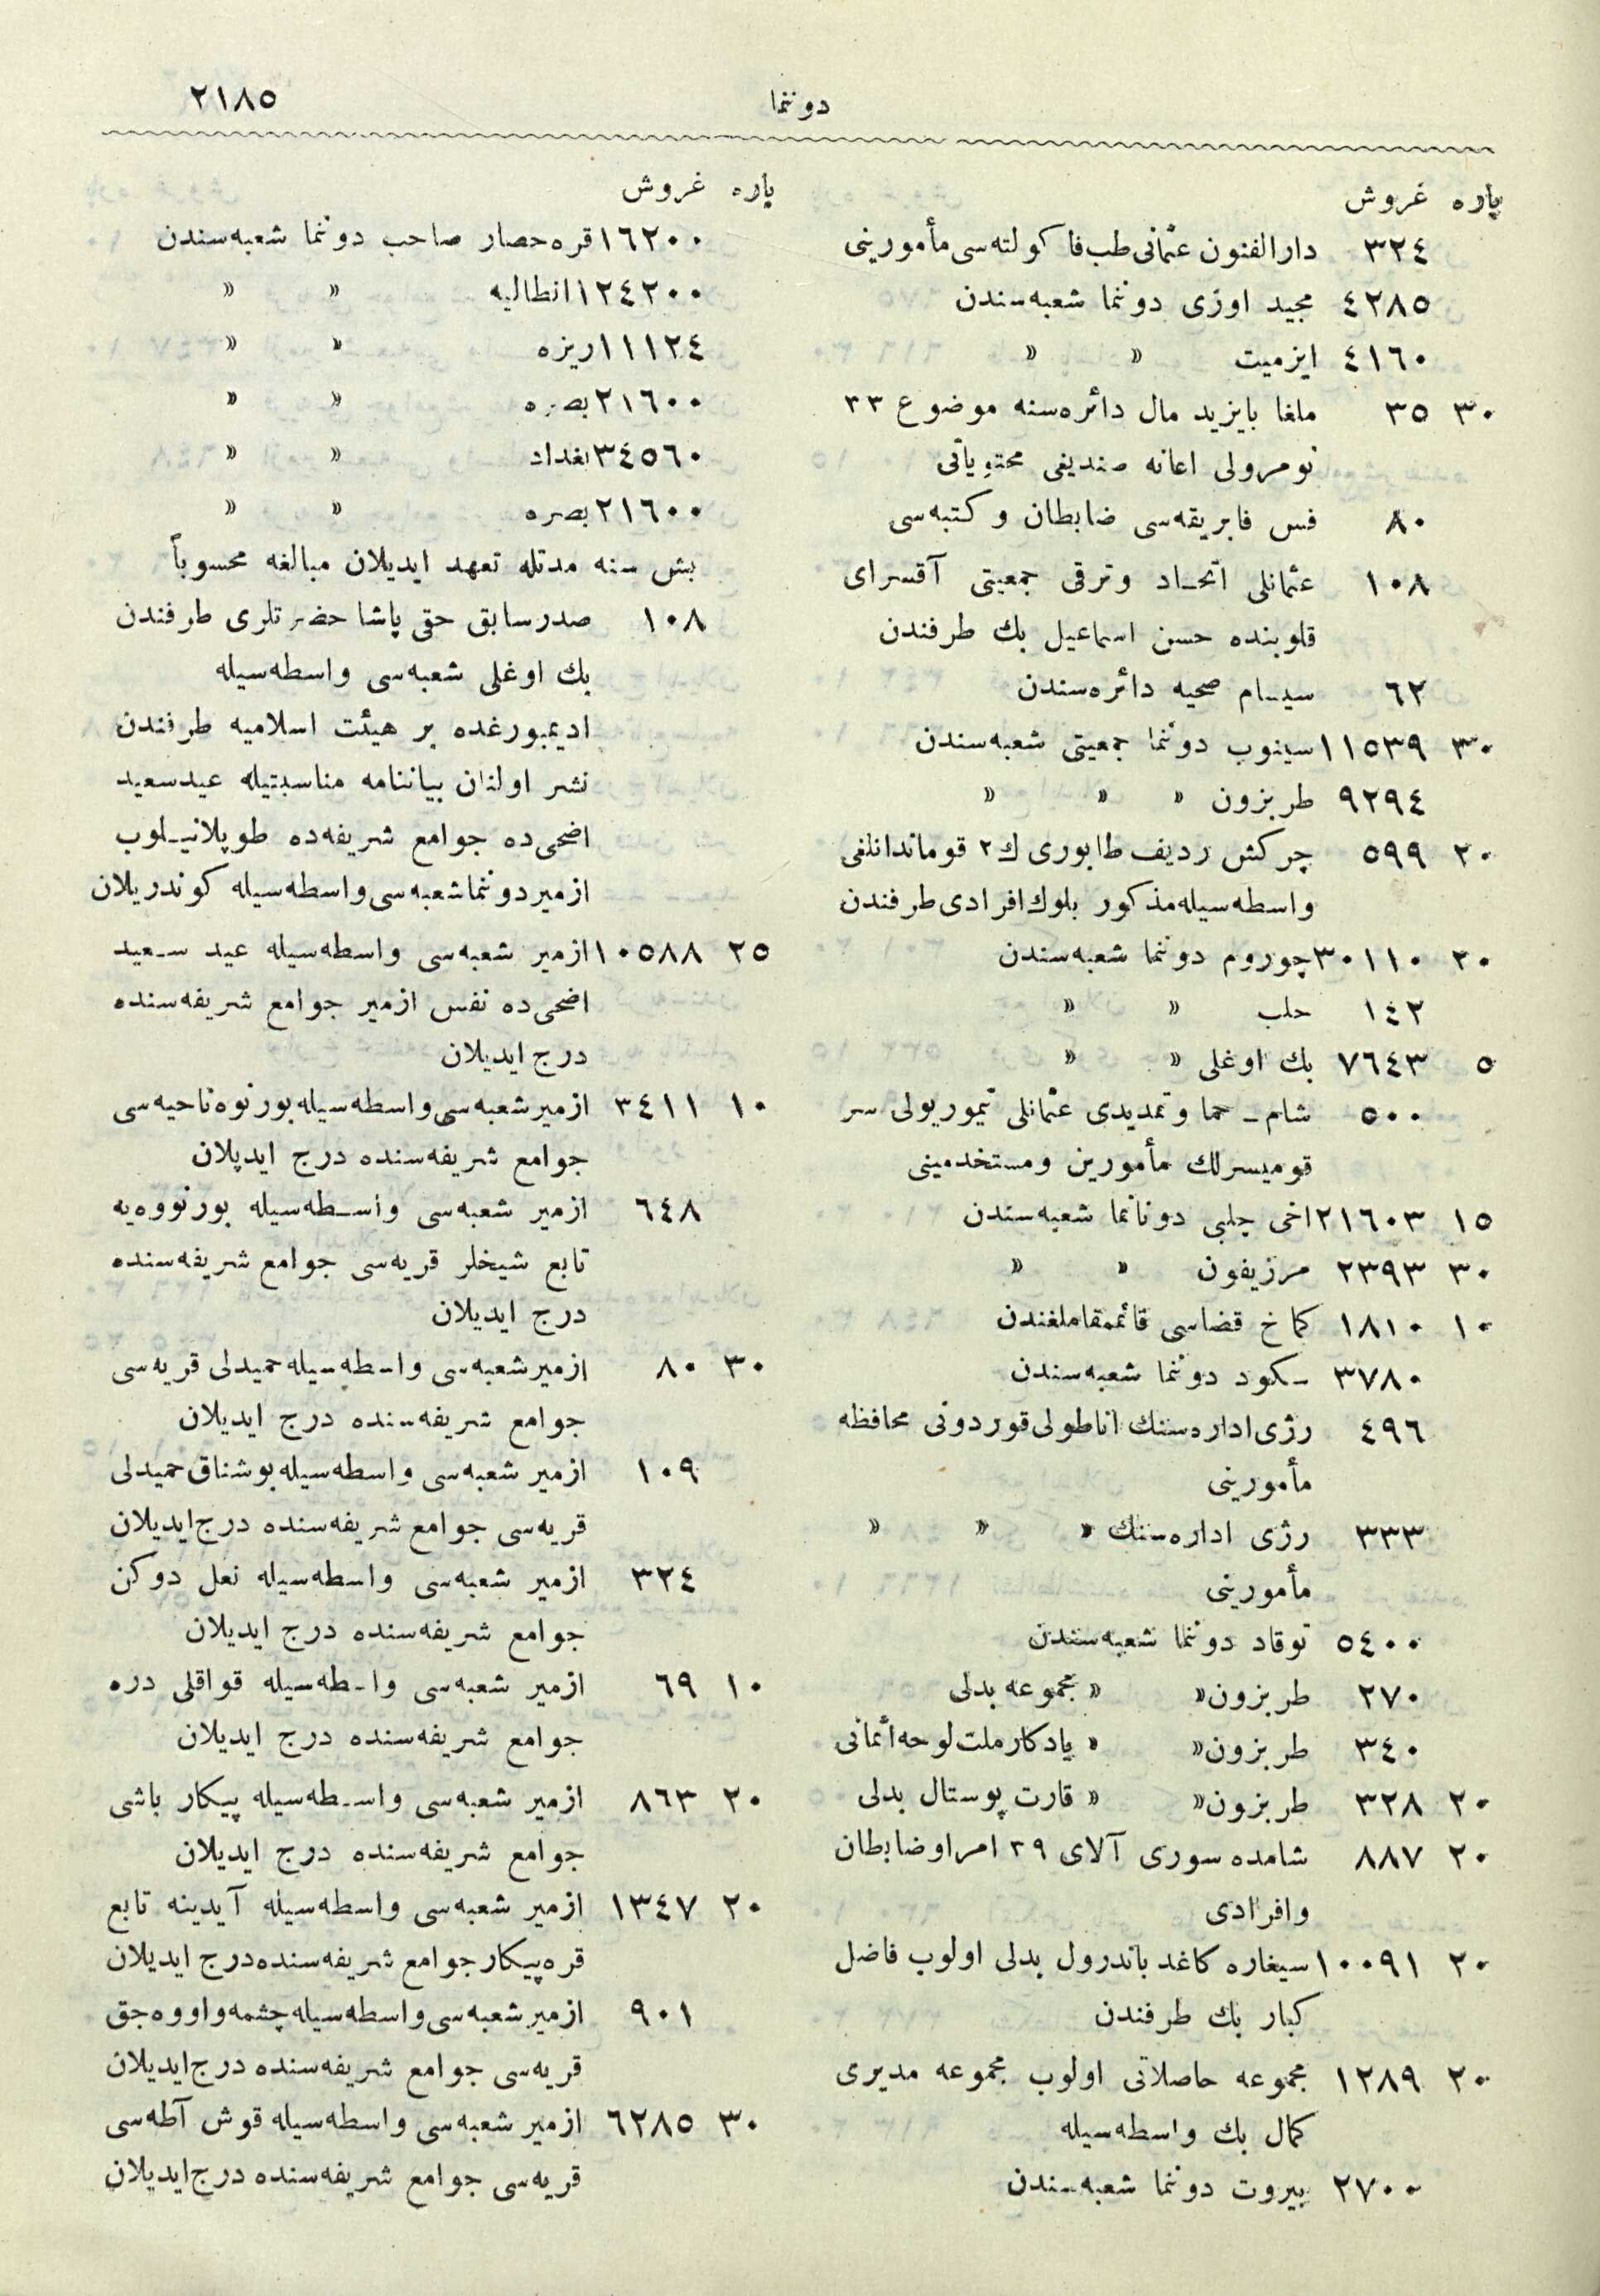 ٢١٨٥
دوننما
پاره غروش
٣٢٤ دارالفنون عثمانی طب فاكولته‌سی مأمورینی
٤٢٨٥ مجید اوزی دوننما شعبه‌سندن
٤١٦٠ ایزمیت » »
٣٠ ٣٥ ملغا بایزید مال دائره‌سنه موضوع ٣٣
نومرولی اعانه صندیغی محتویاتی
٨٠ فس فابریقه‌سی ضابطان وكتبه‌سی
١٠٨ عثمانلی اتحاد وترقی جمعیتی آقسرای
قلوبنده حسن اسماعیل بك طرفندن
٦٢ سیسام صحیه دائره‌سندن
٣٠ ١١٥٣٩ سینوب دوننما جمعیتی شعبه‌سندن
٩٢٩٤ طربزون » » »
٢٠ ٥٩٩ چركش ردیف طابوری ك٢ قوماندانلغی
واسطه‌سیله مذكور بلوك افرادی طرفندن
٢٠ ٣٠١١٠ چوروم دوننما شعبه‌سندن
١٤٢ حلب » »
٥ ٧٦٤٣ بك اوغلی » »
٥٠٠ شام ـ حما وتمدیدی عثمانلی تیموریولی سر
قومیسرلك مأمورین ومستخدمینی
١٥ ٢١٦٠٣ اخی چلبی دونانما شعبه‌سندن
٣٠ ٢٣٩٣ مرزیفون » »
١٠ ١٨١٠ كماخ قضاسی قائممقاملغندن
٣٧٨٠ سكود دوننما شعبه‌سندن
٤٩٦ رژی اداره‌سنك اناطولی قوردونی محافظه
مأمورینی
٣٣٣ رژی اداره‌سنك » » »
مأمورینی
٥٤٠٠ توقاد دوننما شعبه‌سندن
٢٧٠ طربزون » » مجموعه بدلی
٣٤٠ طربزون » » یادكار ملت لوحه اثمانی
٢٠ ٣٢٨ طربزون » » قارت پوستال بدلی
٢٠ ٨٨٧ شامده سوری آلای ٢٩ امرا وضابطان
وافرادی
٢٠ ١٠٠٩١ سیغاره كاغد باندرول بدلی اولوب فاضل
كبار بك طرفندن
٢٠ ١٢٨٩ مجموعه حاصلاتی اولوب مجموعه مدیری
كمال بك واسطه‌سیله
٢٧٠٠ بیروت دوننما شعبه‌سندن
پاره غروش
١٦٢٠٠ قره‌حصار صاحب دوننما شعبه‌سندن
١٢٤٢٠٠ انطالیه » »
١١١٢٤ ریزه » »
٢١٦٠٠ بصره » »
٣٤٥٦٠ بغداد » »
٢١٦٠٠ بصره » »
بش سنه مدتله تعهد ایدیلان مبالغه محسوباً
١٠٨ صدر سابق حقی پاشا حضرتلری طرفندن
بك اوغلی شعبه‌سی واسطه‌سیله
ادیمبورغده بر هیئت اسلامیه طرفندن
نشر اولنان بیاننامه مناسبتیله عید سعید
اضحی‌ده جوامع شریفه‌ده طوپلانیلوب
ازمیر دوننما شعبه‌سی واسطه‌سیله كوندریلان
٢٥ ١٠٥٨٨ ازمیر شعبه‌سی واسطه‌سیله عید سعید
اضحی‌ده نفس ازمیر جوامع شریفه‌سنده
درج ایدیلان
١٠ ٣٤١١ ازمیر شعبه‌سی واسطه‌سیله بورنوه ناحیه‌سی
جوامع شریفه‌سنده درج ایدیلان
٦٤٨ ازمیر شعبه‌سی واسطه‌سیله بورنووه‌یه
تابع شیخلر قریه‌سی جوامع شریفه‌سنده
درج ایدیلان
٣٠ ٨٠ ازمیر شعبه‌سی واسطه‌سیله حمیدلی قریه‌سی
جوامع شریفه‌سنده درج ایدیلان
١٠٩ ازمیر شعبه‌سی واسطه‌سیله بوشناق حمیدلی
قریه‌سی جوامع شریفه‌سنده درج ایدیلان
٣٢٤ ازمیر شعبه‌سی واسطه‌سیله نعل دوكن
جوامع شریفه‌سنده درج ایدیلان
١٠ ٦٩ ازمیر شعبه‌سی واسطه‌سیله قواقلی دره
جوامع شریفه‌سنده درج ایدیلان
٢٠ ٨٦٣ ازمیر شعبه‌سی واسطه‌سیله پیكار باشی
جوامع شریفه‌سنده درج ایدیلان
٢٠ ١٣٤٧ ازمیر شعبه‌سی واسطه‌سیله آیدینه تابع
قره‌پیكار جوامع شریفه‌سنده درج ایدیلان
٩٠١ ازمیر شعبه‌سی واسطه‌سیله چشمه واووه‌جق
قریه‌سی جوامع شریفه‌سنده درج ایدیلان
٣٠ ٦٢٨٥ ازمیر شعبه‌سی واسطه‌سیله قوش آطه‌سی
قریه‌سی جوامع شریفه‌سنده درج ایدیلان